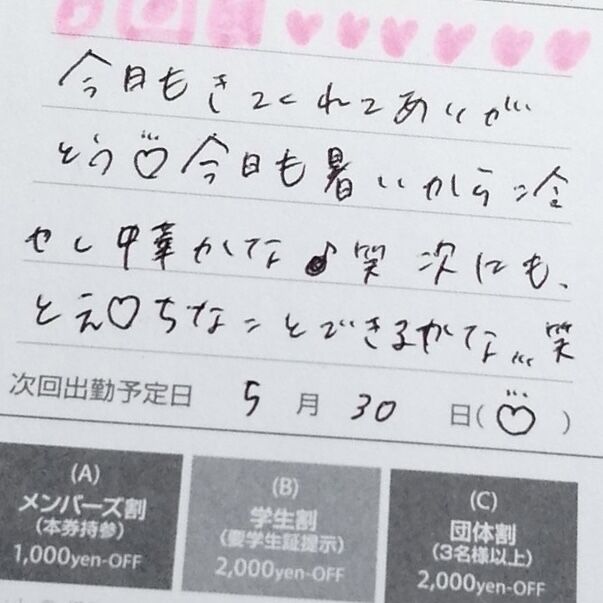 今日もきてくれてありが
とう♡今日も暑いから冷
やし中華かな♪笑 次はもっ
とえ♡ちなことできるかな...笑
次回出勤予定日 5月30日(♡)
(A)
メンバーズ割
(本券持参)
1,000yen-OFF
(B)
学生割
(要学生証提示)
2,000yen-OFF
(C)
団体割
(3名様以上)
2,000yen-OFF